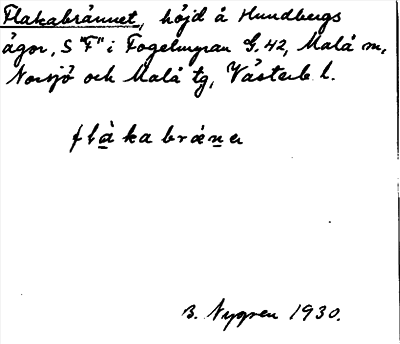 Flakabrännet, höjd å Hundbergs
ägor, S "F" i Fogelmyran G. 42, Malå m,
Norsjö och Malå tg, Västerb. l.
flàkabræna
B. Nygren 1930.